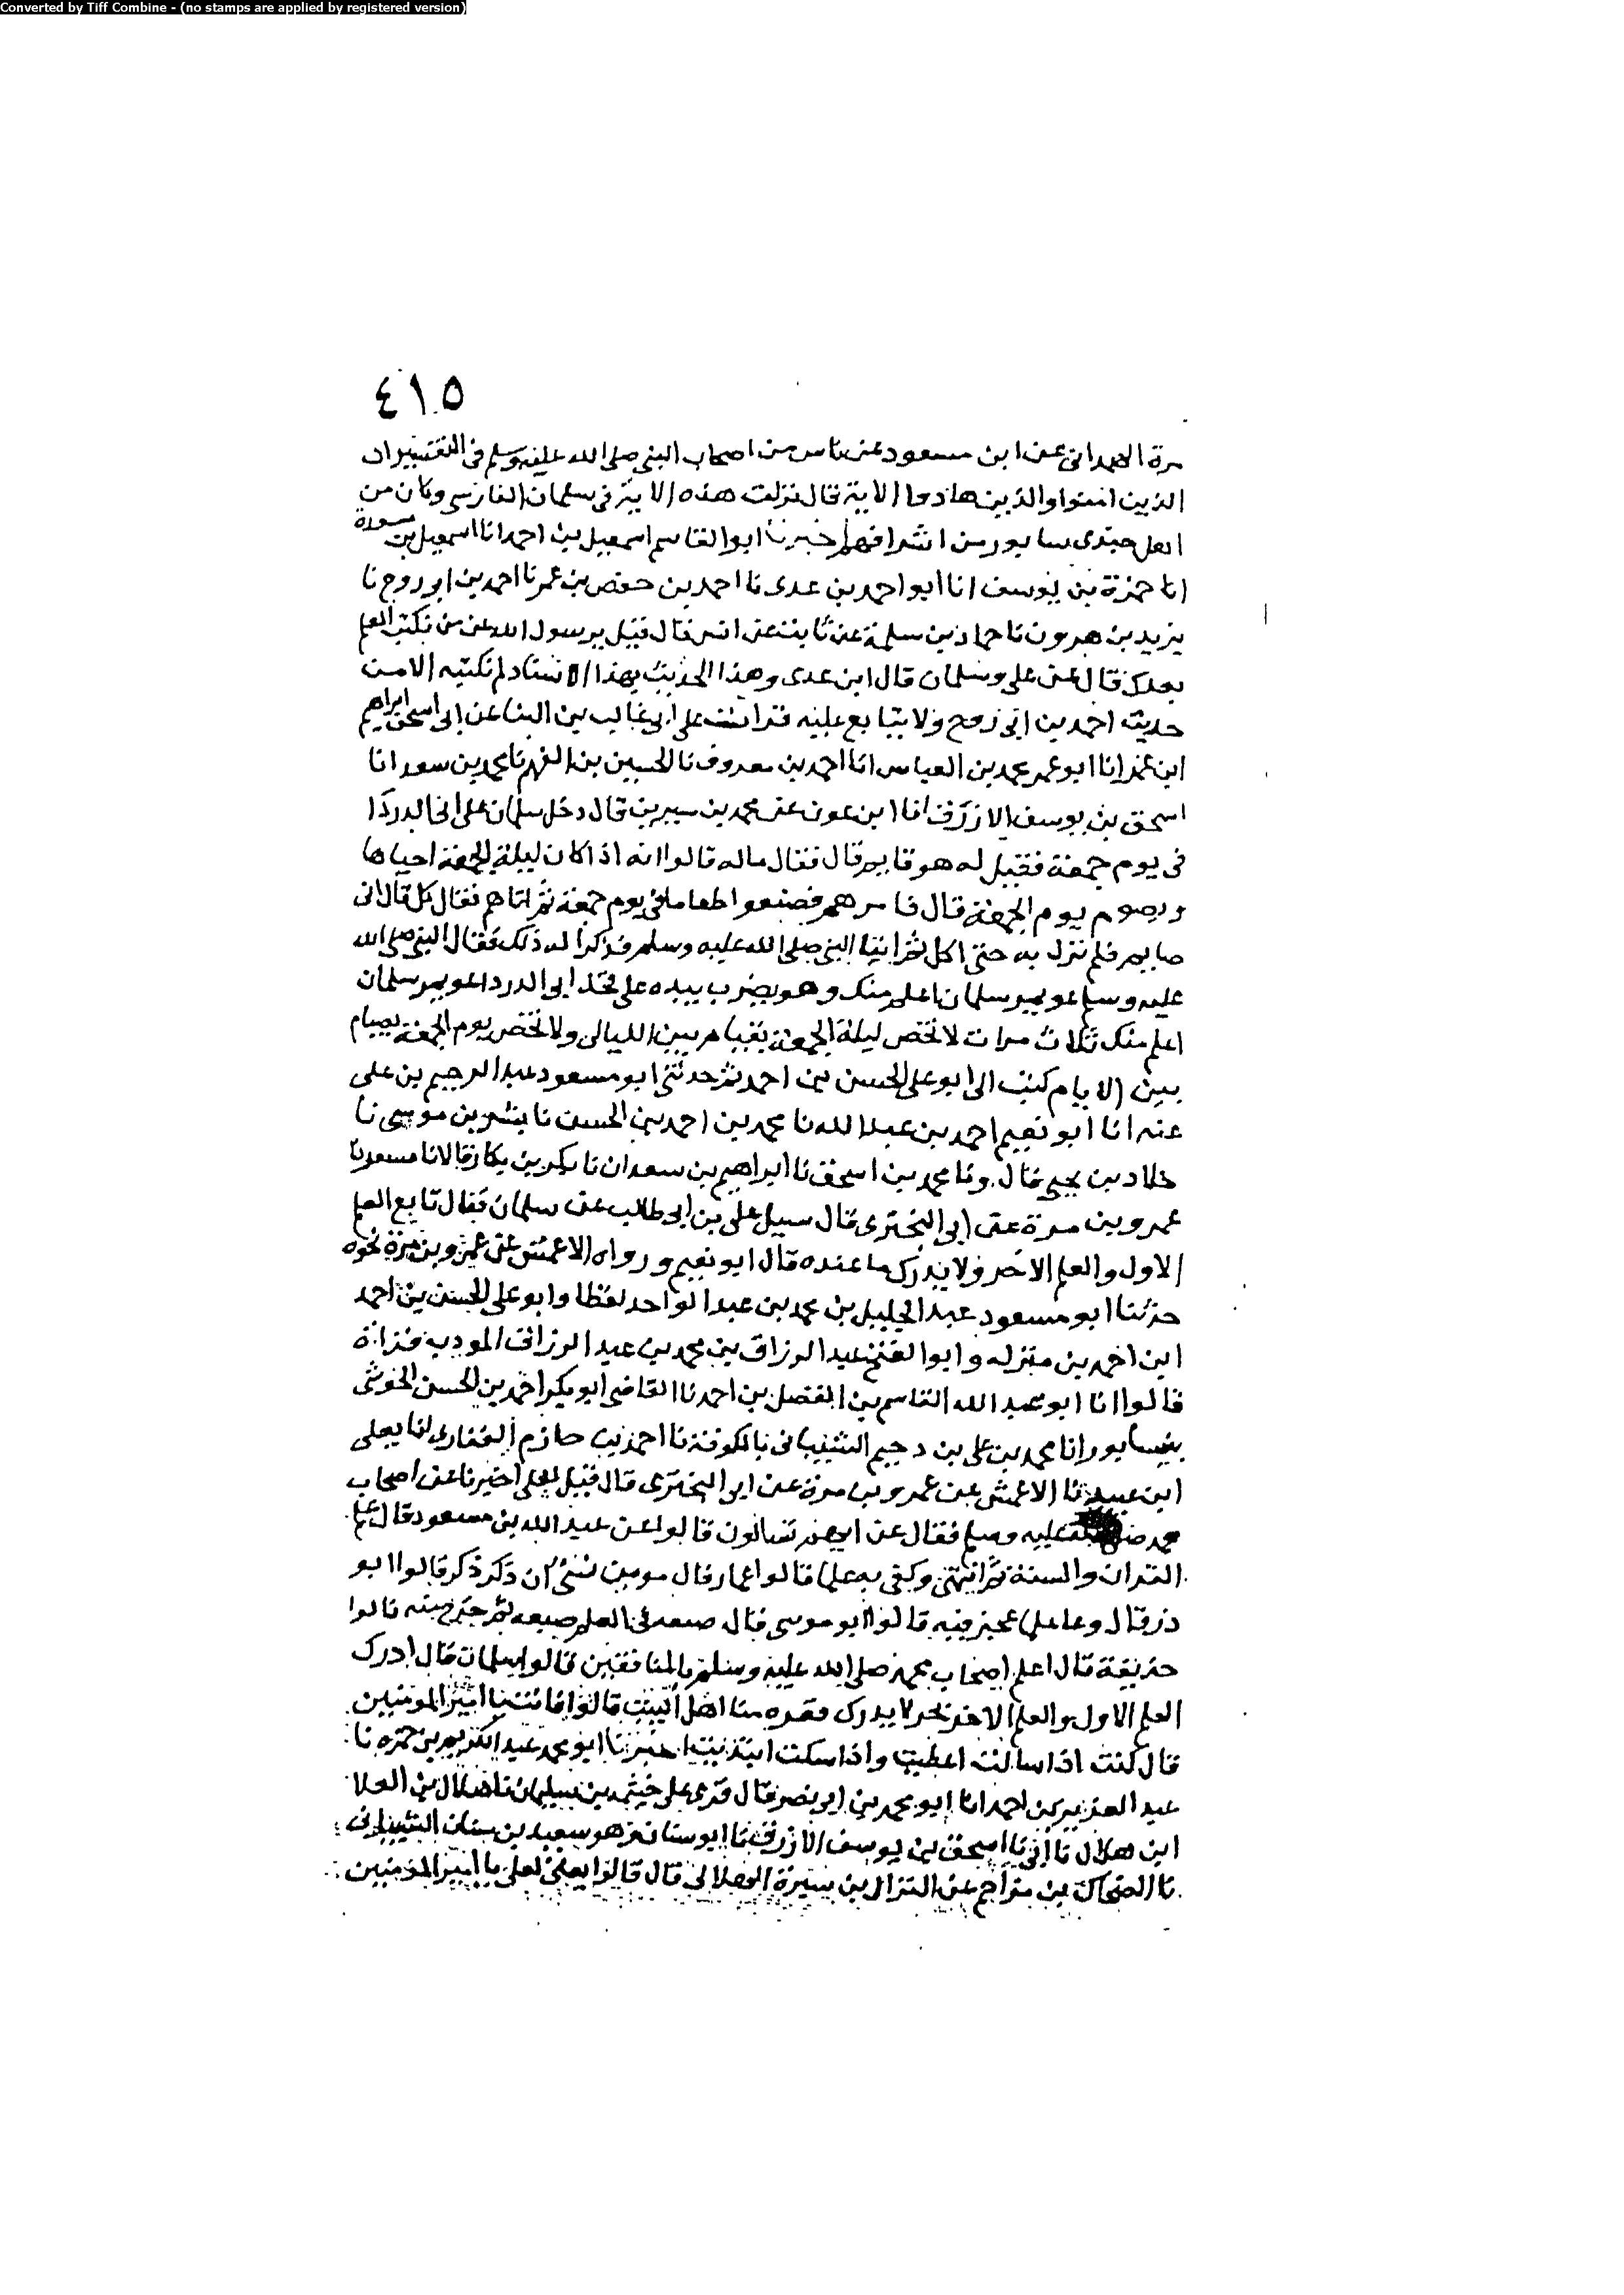 Converted by Tiff Combine - (no stamps are applied by registered version)
٤١٥
مرة الهمدانى عن ابن مسعود عن ناس من اصحاب النبى صلى الله عليه وسلم فى التفسير ان
الذين امنوا والذين هادوا الاية قال نزلت هذه الاية فى سلمان الفارسى وكان من
اهل جندى سابور من اشرافهم اخبرنا ابوا لقاسم اسمعيل بن احمد انا اسمعيل بن مسعدة
انا حمزة بن يوسف انا ابو احمد بن عدى نا احمد بن حفص بن عمر نا احمد بن ابو روح نا
يزيد بن هرون نا حماد بن سلمة عن ثابت عن انس قال قيل يرسول الله عن من نكتب العلم
بعدك قال عن على وسلمان قال ابن عدى وهذا الحديث بهذا الاسناد لم نكتبه الا من
حديث احمد بن ابى روح ولا يتابع عليه قرات على ابى غالب بن البنا عن ابى اسحق ابراهيم
ابن عمر انا ابو عمر محمد بن العباس انا احمد بن معروف نا الحسين بن الفهم نا محمد بن سعد انا
اسحق بن يوسف الازرق انا ابن عون عن محمد بن سيرين قال دخل سلمان على ابى الدردا
فى يوم جمعة فقيل له هو نايم قال فقال ماله قالوا انه اذا كان ليلة الجمعة احياها
ويصوم يوم الجمعة قال فامرهم فصنعوا طعاما فى يوم جمعة ثم اتاهم فقال كل قال انى
صايم فلم نزل به حتى اكل ثم اتيا النبى صلى الله عليه وسلم فذكرا له ذلك فقال النبى صلى الله
عليه وسلم عويمر سلمان اعلم منك وهو يضرب بيده على فخذ ابى الدردا عويمر سلمان
اعلم منك ثلاث مرات لا تخص ليلة الجمعة بقيام بين الليالى ولا تخص يوم الجمعة بصيام
بين الايام كتب الى ابو على الحسن بن احمد ثم حدثنى ابو مسعود عبد الرحيم بن على
عنه انا ابو نعيم احمد بن عبد الله نا محمد بن احمد بن الحسن نا بشر بن موسى نا
خلاد بن يحيى قال ونا محمد بن اسحق نا ابراهيم بن سعدان نا بكر بن بكار قالا نا مسعر نا
عمرو بن مرة عن ابى البخترى قال سيل على بن ابى طالب عن سلمان فقال تابع العلم
الاول والعلم الاخر ولا يدرك ما عنده قال ابو نعيم ورواه الاعمش عن عمرو بن مرة نحوه
حدثنا ابو مسعود عبد الجليل بن محمد بن عبد الواحد لفظا وابو على الحسن بن احمد
ابن احمد بن منزله وابوا لغنم عبد الرزاق بن محمد بن عبد الرزاق المودب قراة
قالوا انا ابو عبد الله القاسم بن الفضل بن احمد نا القاضى ابو بكر احمد بن الحسن الحرشى
بنيسابور انا محمد بن على بن دحيم الشيبانى نا بالكوفة نا احمد بن حازم الغفارى انا يعلى
ابن عبيد نا الاعمش عن عمرو بن مرة عن ابو البخترى قال قيل لعلى اخبرنا عن اصحاب
محمد صلى الله عليه وسلم فقال عن ايهم تسالون قالوا عن عبد الله بن مسعود قال علم
القران والسنة ثم انتهى وكفى به علما قالوا عمار قال مومن نسى ان ذكر ذكر قالوا ابو
ذر قال وعا علما عجز فيه قالوا ابو موسى قال صبغ فى العلم صبغه ثم خرج منه قالوا
حذيفة قال اعلم اصحاب محمد صلى الله عليه وسلم بالمنافقين قالوا سلمان قال ادرك
العلم الاول والعلم الاخر بحر لا يدرك قعره منا اهل البيت قالوا فانت يا امير المومنين
قال كنت اذا سالت اعطيت واذا سكت ابتديت اخبرنا ابو محمد عبد الكريم بن حمزه نا
عبد العزيز بن احمد انا ابو محمد بن ابو نصر قال قرى على خيثمة بن سليمان نا هلال بن العلا
ابن هلال نا ابى نا اسحق بن يوسف الازرق نا ابو سنان هو سعيد بن سنان الشيبانى
نا الضحاك بن مزاحم عن النزال بن سبرة الهلالى قال قالوا يعنى لعلى يا امير المومنين